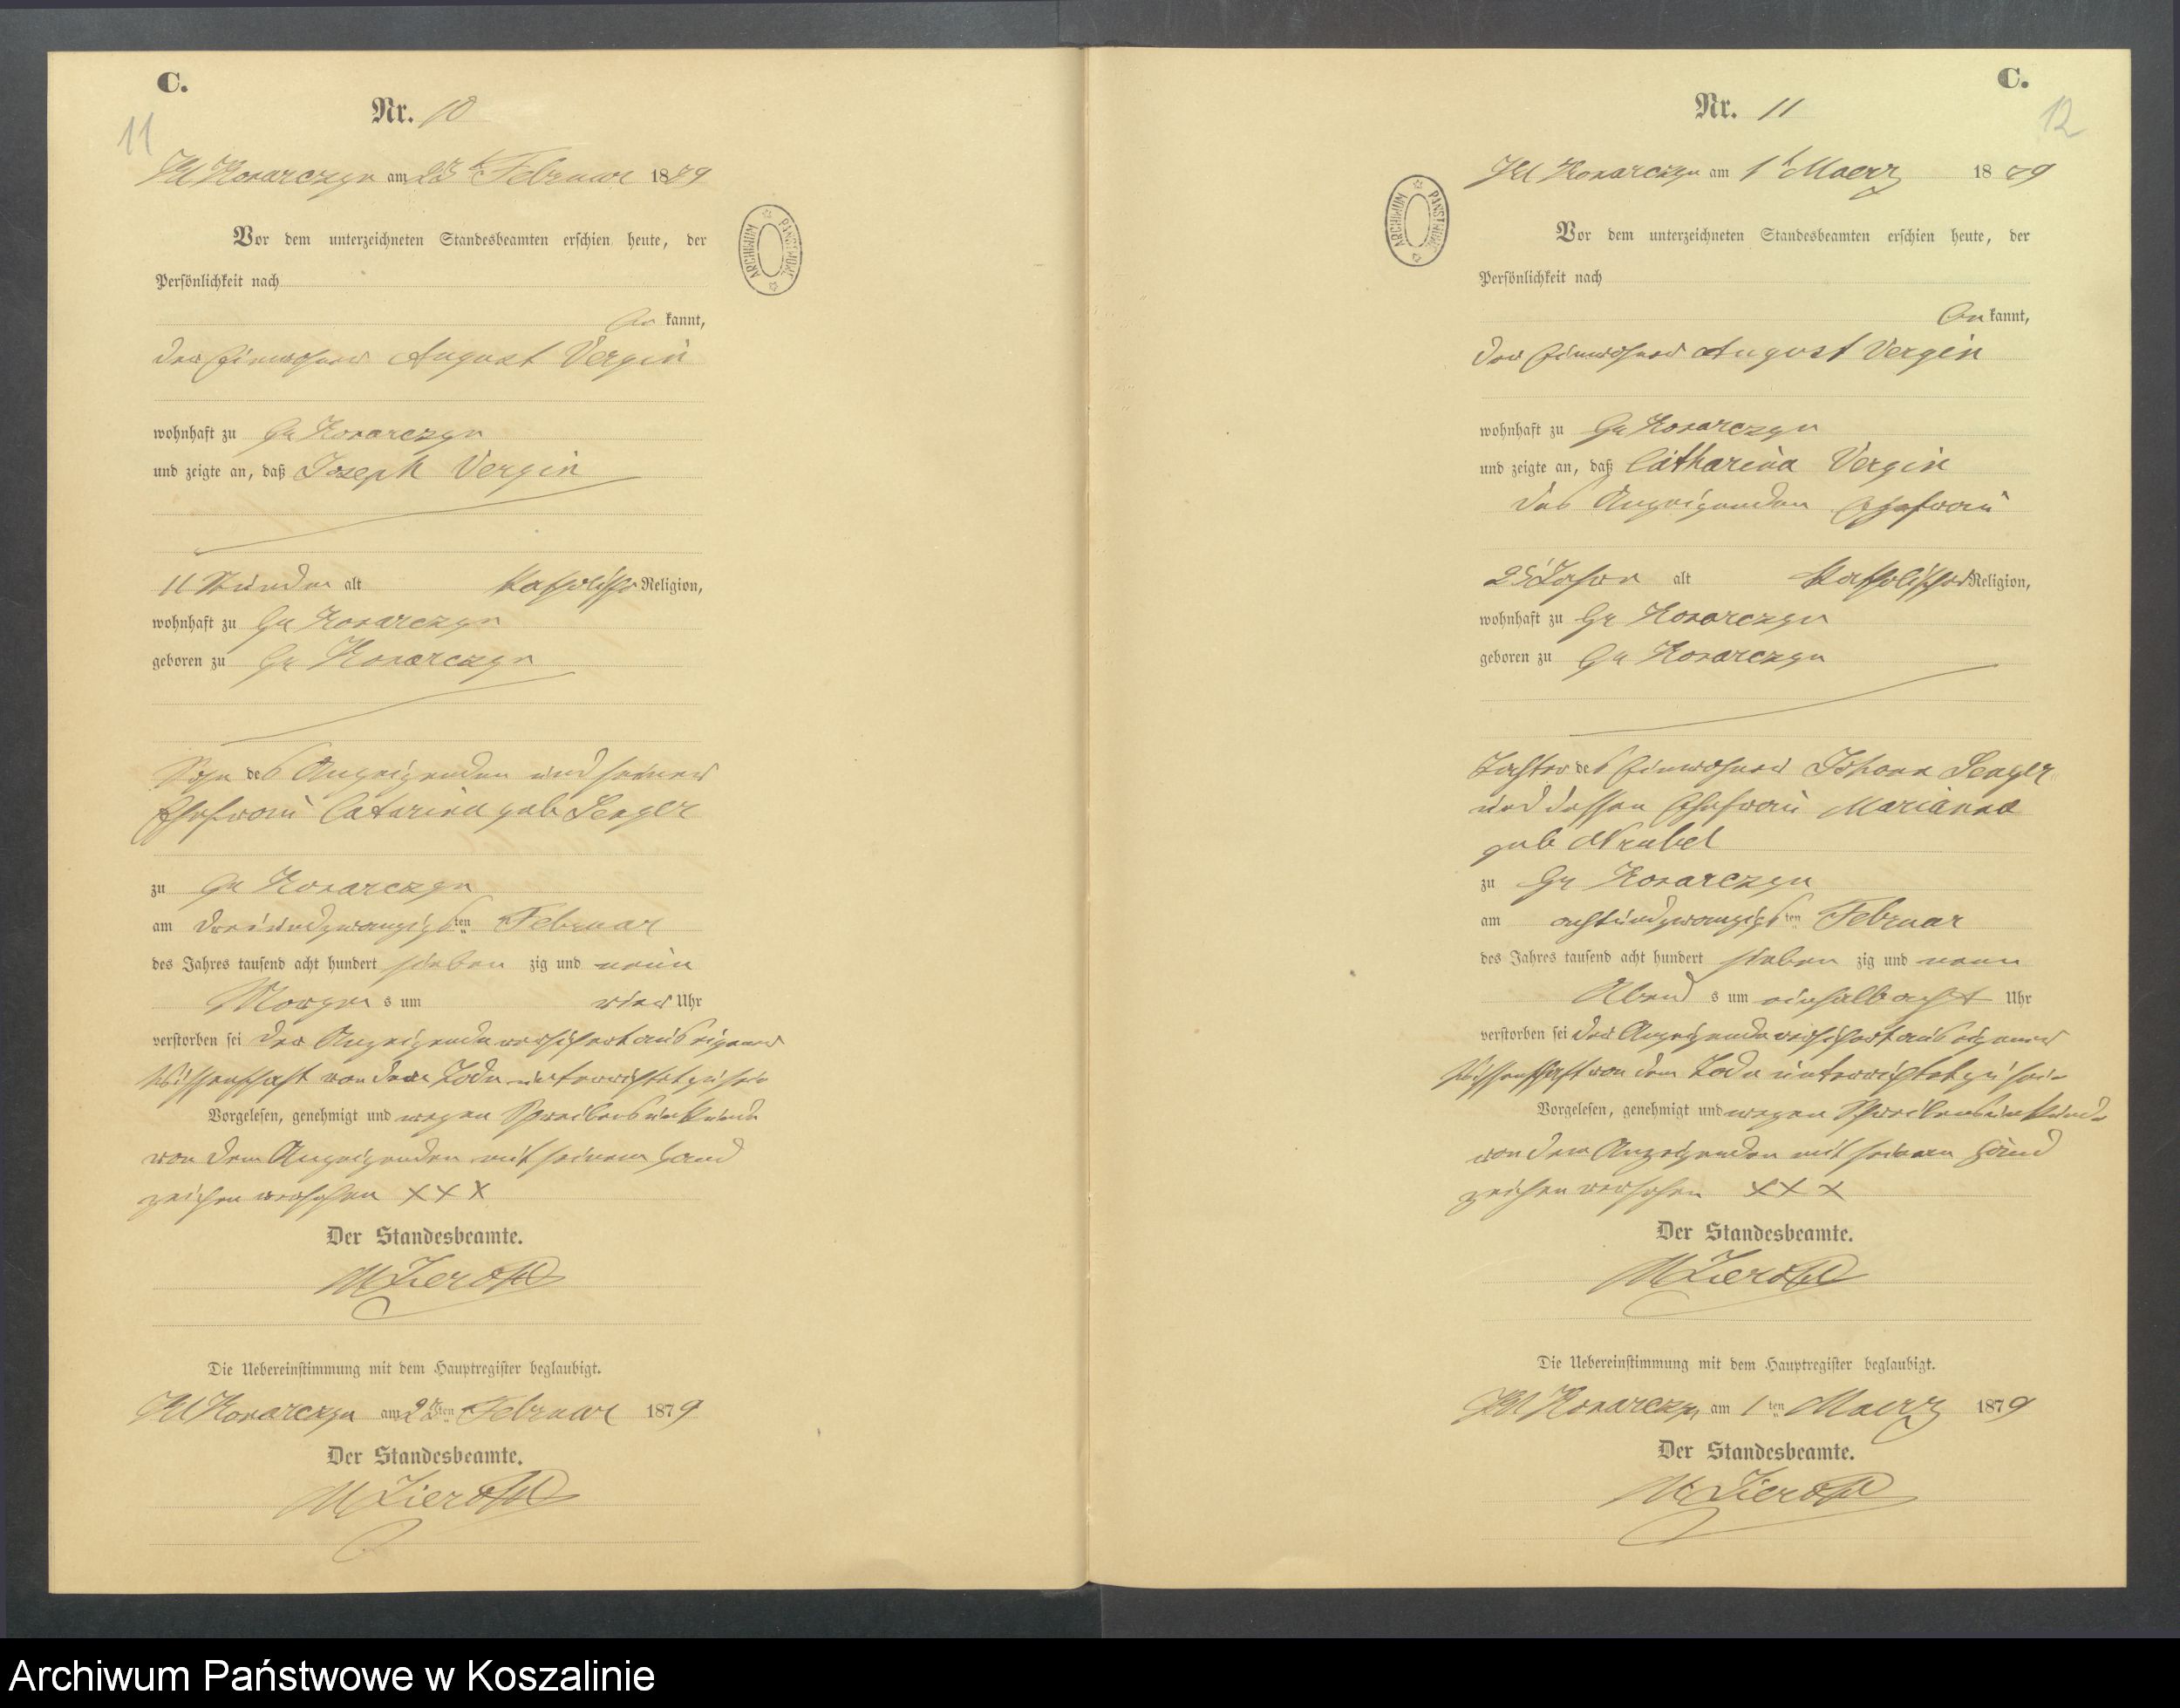 C.
11
Nr. 10
Kl Konarczyn am 23t Februar 1879
Vor dem unterzeichneten Standesbeamten erschien heute, der
Persönlichkeit nach
be kannt,
der Einwohner August Vergin
wohnhaft zu Gr Konarczyn
und zeigte an, daß Joseph Vergin
11 Stunden alt katholischer Religion,
wohnhaft zu Gr Konarczyn
geboren zu Gr Konarczyn
Sohn des Anzeigenden und seiner
Ehefrau Catarina geb Senger
zu Gr Konarczyn
am dreiundzwanzigsten Februar
des Jahres tausend acht hundert sieben zig und neun
Morgen s um vier Uhr
verstorben sei der Anzeigende versichert aus eigener
Wissenschaft von dem Tode unterrichtet zu sein
Vorgelesen, genehmigt und wegen Schreibensunkunde
von dem Anzeigenden mit seinem Hand
zeichen versehen XXX
Der Standesbeamte.
Die Uebereinstimmung mit dem Hauptregister beglaubigt.
Kl Konarczyn am 23ten Februar 1879
Der Standesbeamte.
C.
12
Nr. 11
Kl Konarczyn am 1t Maerz 1879
Vor dem unterzeichneten Standesbeamten erschien heute, der
Persönlichkeit nach
be kannt,
der Einwohner August Vergin
wohnhaft zu Gr Konarczyn
und zeigte an, daß Catharina Vergin
des Anzeigenden Ehefrau
25 Jahre alt katholischer Religion,
wohnhaft zu Gr Konarczyn
geboren zu Gr Konarczyn
Tochter des Einwohner Johann Senger
und dessen Ehefrau Marianna
geb Wrubel
zu Gr Konarczyn
am achtundzwanzigsten Februar
des Jahres tausend acht hundert sieben zig und neun
Abend s um einhalb acht Uhr
verstorben sei der Anzeigende versichert aus eigener
Wissenschaft von dem Tode unterrichtet zu sein
Vorgelesen, genehmigt und wegen Schreibensunkunde
von dem Anzeigenden mit seinem Hand
zeichen versehen XXX
Der Standesbeamte.
Die Uebereinstimmung mit dem Hauptregister beglaubigt.
Kl Konarczyn am 1ten Maerz 1879
Der Standesbeamte.
ARCHIWUM PAŃSTWOWE
ARCHIWUM PAŃSTWOWE
Archiwum Państwowe w Koszalinie